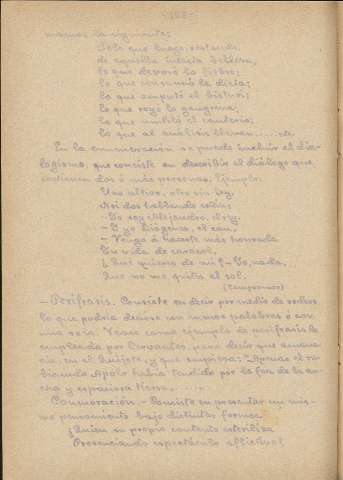 - 128 -
mamos la siguiente:
Solo que luego, restando
de aquella intacta belleza,
lo que devoró la fiebre;
lo que consumió la dieta;
lo que amputó el bisturí;
lo que royó la gangrena,
lo que mutiló el cauterio;
lo que al análisis llevan......etc
En la enumeración se puede incluir el dia-
logismo, que consiste en describir el diálogo que
sostienen dos ó más personas. Ejemplo:
Uno altivo, otro sin ley,
Así dos hablando están;
- Yo soy Alejandro, el rey.
- Y yo Diógenes, el can.
- Vengo á hacerte más honrada
Tu vida de caracol.
¿Qué quieres de mí? - Yo, nada,
Que no me quites el sol.
(Campoamor)
- Perífrasis. Consiste en decir por medio de rodeos
lo que podría decirse con menos palabras ó con
una sola. Véase como ejemplo la perífrasis
empleada por Cervantes, para decir que amane-
cía, en el Quijote, y que empieza: "Apenas el ru-
bicundo Apolo había tendido por la faz de la an-
cha y espaciosa tierra......
Conmoración. - Consiste en presentar un mis-
mo pensamiento bajo distintas formas.
¿Quién su propio contento esteriliza
Presenciando espectáculo aflictivo?